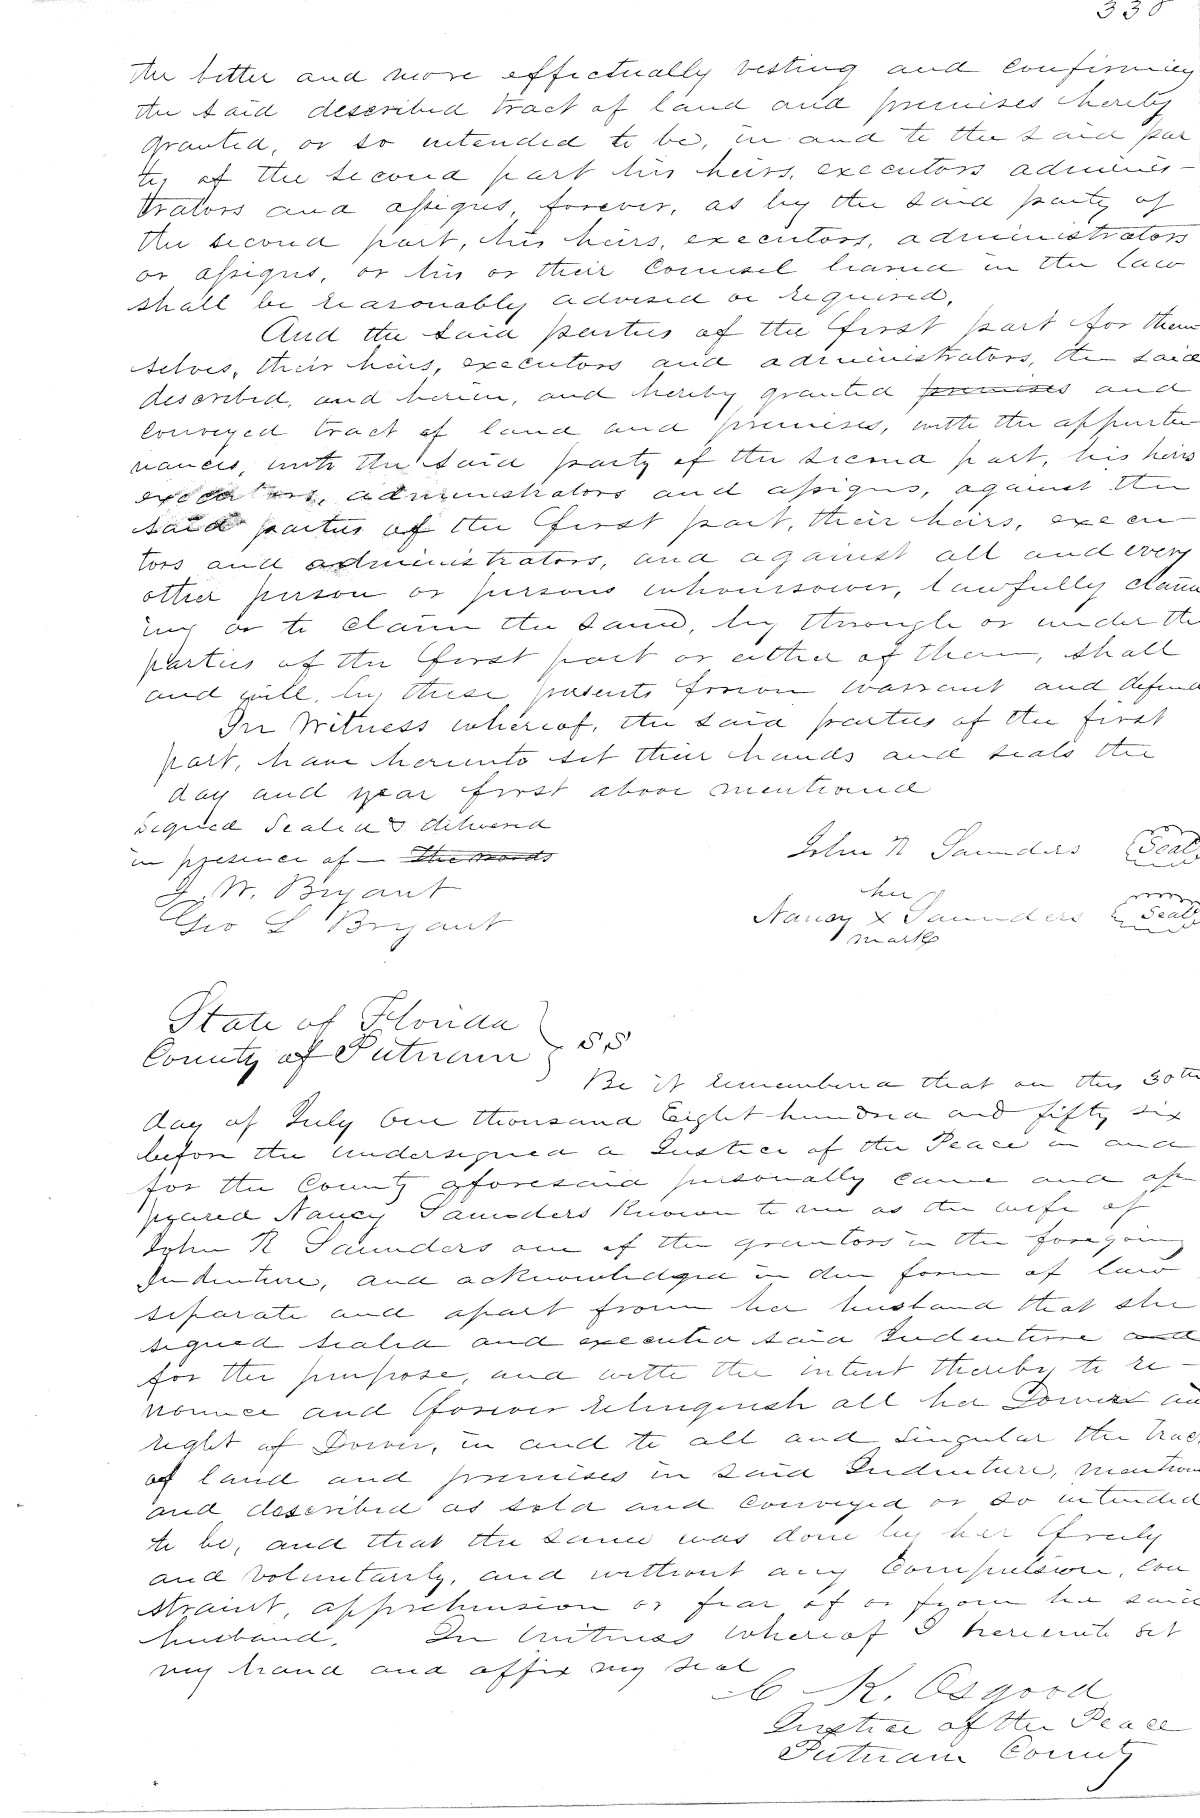 338
the better and more effectually vesting and confirming
the said described tract of land and premises hereby
granted, or so intended to be, in and to the said par
ty of the second part his heirs, executors adminis-
trators and assigns, forever, as by the said party of
the second part, his heirs, executors, administrators
or assigns, or his or their counsel learned in the law
shall be reasonably advised or required.
And the said parties of the first part for them
selves, their heirs, executors and administrators, the said
described, and herein, and hereby granted premises and
conveyed tract of land and premises, with the appurte
nances, unto the said party of the second part, his heirs
executors, administrators and assigns, against the
said parties of the first part, their heirs, execu
tors and administrators, and against all and every
other person or persons whomsoever, lawfully claim
ing or to claim the same, by through or under the
parties of the first part or either of them, shall
and will by these presents forever warrant and defend
In Witness whereof, the said parties of the first
part, have hereunto set their hands and seals the
day and year first above mentioned
Signed Sealed & delivered
in presence of — the words
J. W. Bryant
Geo L Bryant
John R Saunders Seal
her
Nancy X Saunders Seal
mark
State of Florida
County of Putnam } SS
Be it remembered that on this 30th
day of July One thousand Eight hundred and fifty six
before the undersigned a Justice of the Peace in and
for the County aforesaid personally came and ap
peared Nancy Saunders Known to me as the wife of
John R Saunders one of the grantors in the foregoing
Indenture, and acknowledged in due form of law
separate and apart from her husband that she
signed sealed and executed said Indenture and
for the purpose, and with the intent thereby to re-
nounce and forever relinquish all her Dower and
right of Dower, in and to all and Singular the trac
of land and premises in said Indenture, mention
and described as sold and conveyed or so intended
to be, and that the same was done by her freely
and voluntarily, and without any Compulsion, con
straint, apprehension or fear of or from her said
husband. In Witness whereof I hereunto set
my hand and affix my seal
C K. Osgood
Justice of the Peace
Putnam County